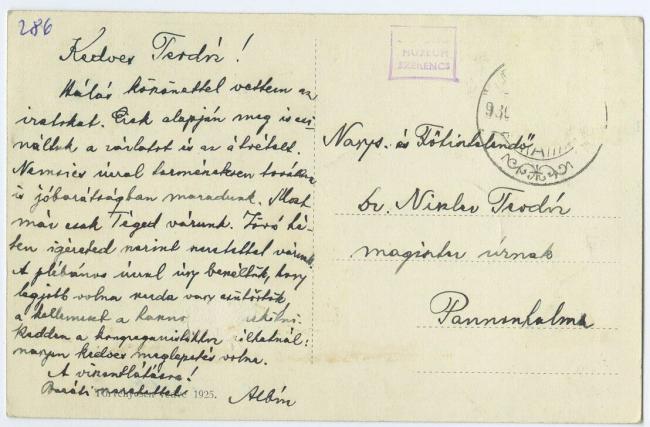 286
Kedves Teodóz!
Hálás köszönettel vettem az
iratokat. Ezek alapján meg is csi-
náltuk a zárlatot és az átvételt.
Nemsics úrral természetesen továbbra
is jóbarátságban maradunk. Most
már csak Téged várunk. Jövő hé-
ten igéreted szerint szeretettel várunk.
A plébános úrral úgy beszéltük, hogy
legjobb volna szerda vagy csütörtök,
a kellemeset a
kedden a kongreganistákkal
nagyon kedves meglepetés volna.
A viszontlátásra!
Baráti szeretettel
Albin
Törvényesen védve 1925.
MUZEUM
SZERENCS
Nagys. és Főtisztelendő
dr. Niszler Teodóz
magister úrnak
Pannonhalma